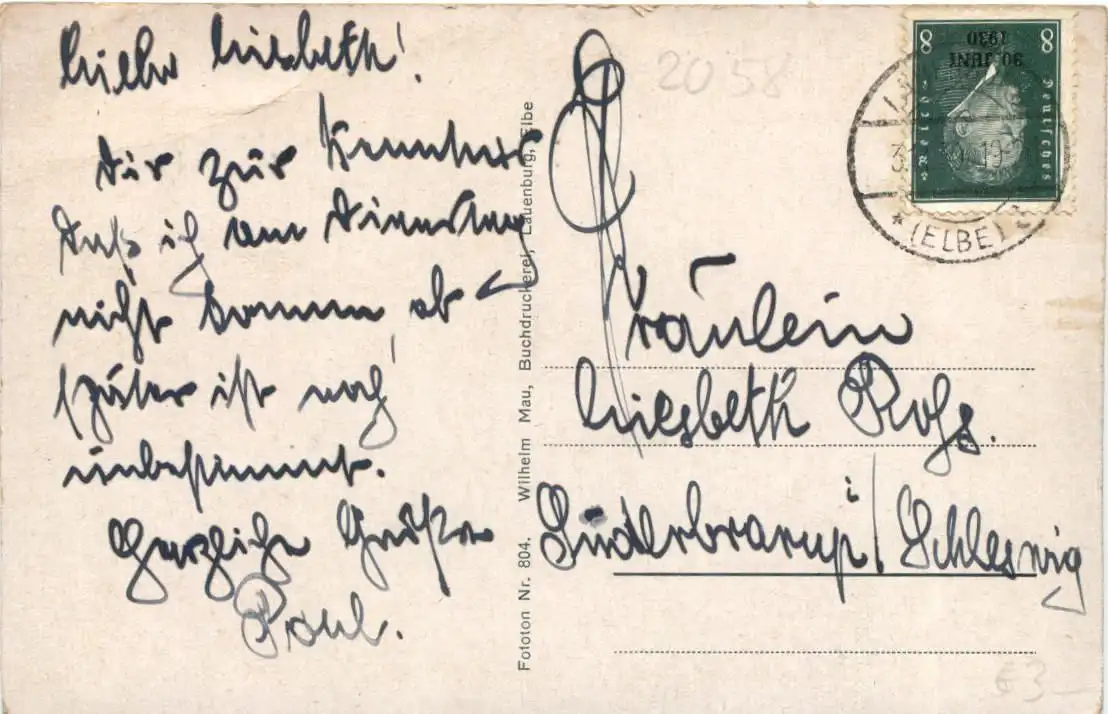 Liebe Liesbeth!
Dir zur Kenntnis
daß ich am Dienstag
nicht komme ob
später ist noch
unbestimmt.
Herzliche Grüße
Paul.
Fototon Nr. 804. Wilhelm Mau, Buchdruckerei, Lauenburg, Elbe
2058
8 8
30. JUNI
1930
Deutsches
Reich
* (ELBE)
Fräulein
Liesbeth Rohs.
Süderbrarup i/ Schleswig
3-